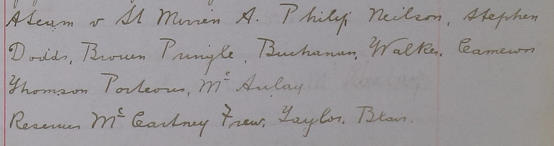 A team v St Mirren A. Philip Neilson, Stephen
Dodds, Brown Pringle, Buchanan, Walker. Cameron
Thomson Porteous, Mc Aulay
Reserves Mc Cartney Frew, Taylor. Blair.